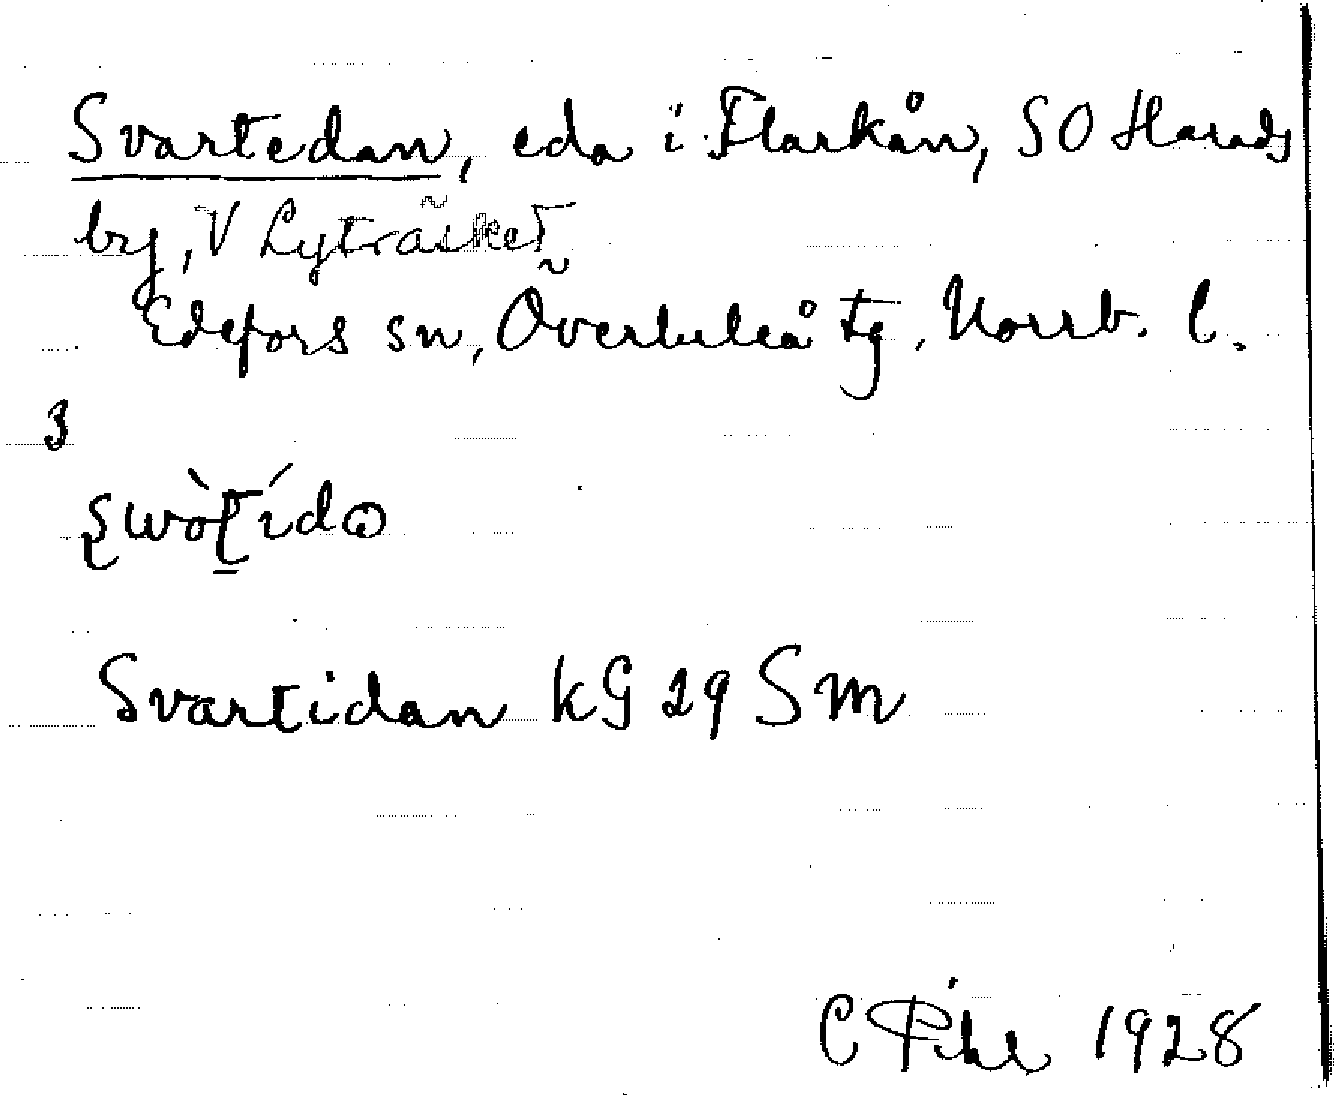 Svartedan, eda i Flarkån, SO Harads
by, V Lyträsket
Edefors sn, Överluleå tg, Norrb. l.
3
Svartidan KG 29 Sm
C Pihl 1928